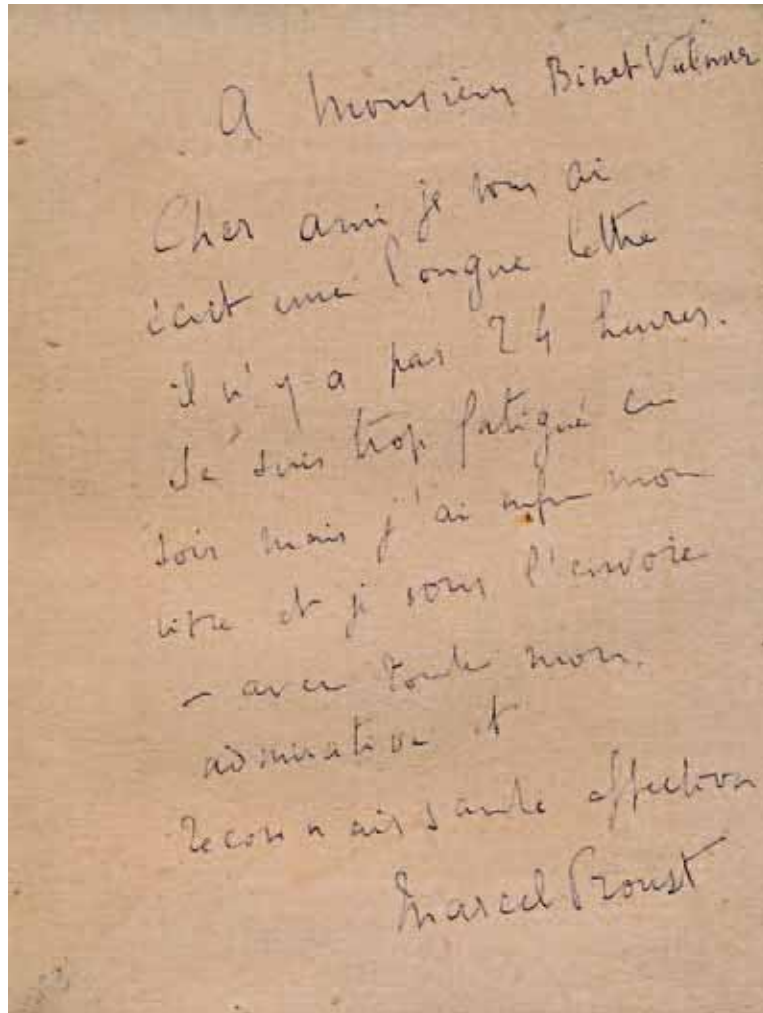 A Monsieur Binet Valmer
Cher ami je vous ai
écrit une longue lettre
il n'y a pas 24 heures.
Je suis trop fatigué ce
soir mais j'ai mon
et je vous l'envoie
avec toute mon
admirative et
reconnaissante affection
Marcel Proust